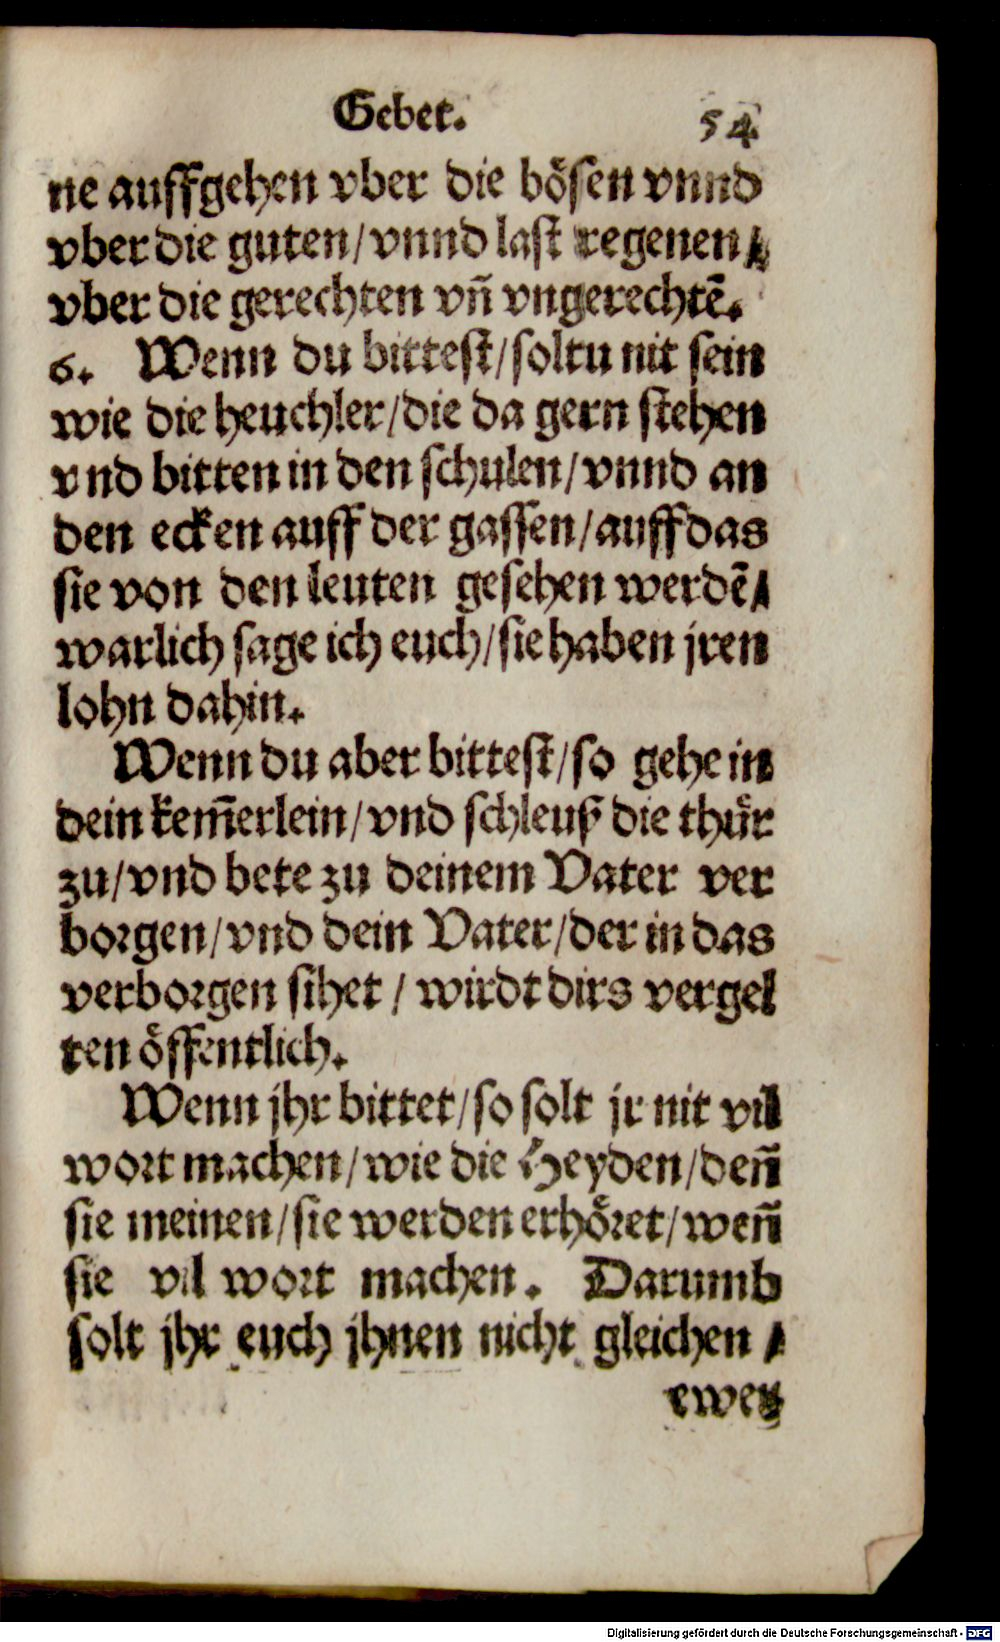 Gebet. 54
ne auffgehen vber die bösen vnnd
vber die guten/ vnnd last regenen/
vber die gerechten vñ vngerechtē.
6. Wenn du bittest/ soltu nit sein
wie die heuchler/ die da gern stehen
vnd bitten in den schulen/ vnnd an
den ecken auff der gassen/ auff das
sie von den leuten gesehen werdē/
warlich sage ich euch/ sie haben jren
lohn dahin.
Wenn du aber bittest/ so gehe in
dein kem̄erlein/ vnd schleuß die thür
zu/ vnd bete zu deinem Vater ver
borgen/ vnd dein Vater/ der in das
verborgen sihet / wirdt dirs vergel
ten öffentlich.
Wenn jhr bittet/ so solt jr nit vil
wort machen/ wie die Heyden/ deñ
sie meinen/ sie werden erhöret/ weñ
sie vil wort machen. Darumb
solt jhr euch jhnen nicht gleichen /
ewer
Digitalisierung gefördert durch die Deutsche Forschungsgemeinschaft - DFG